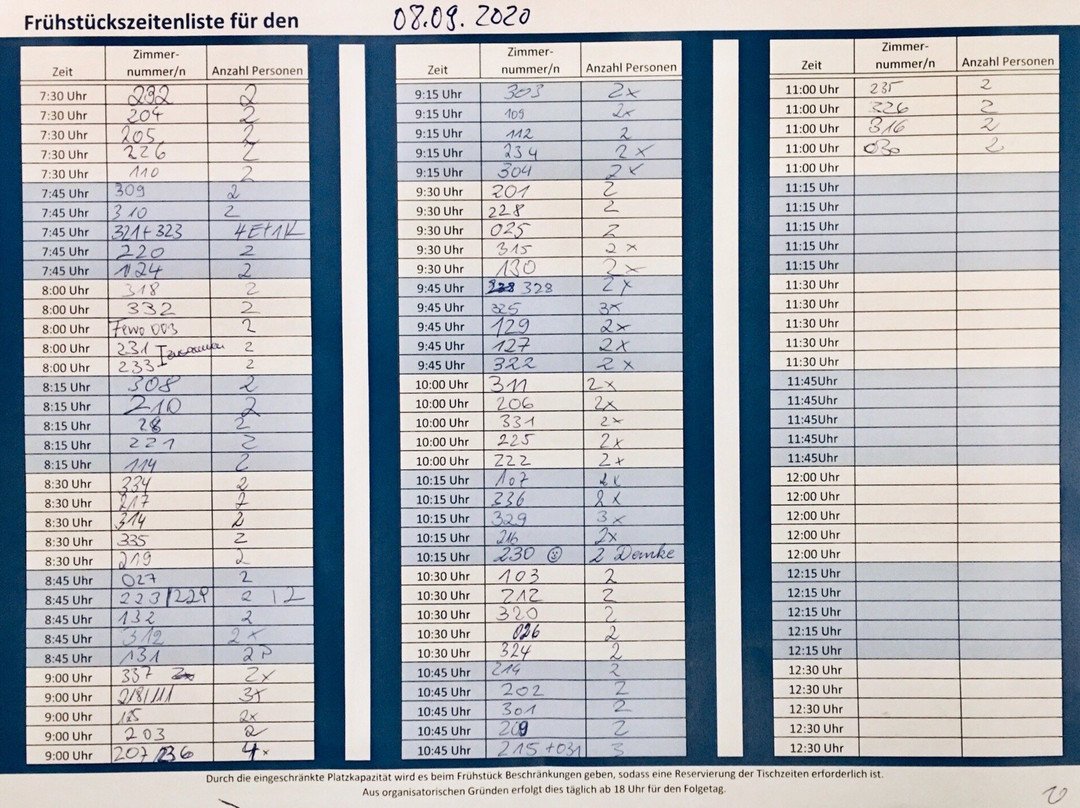 Frühstückszeitenliste für den 08.09. 2020
Zeit Zimmer-nummer/n Anzahl Personen
7:30 Uhr 232 2
7:30 Uhr 204 2
7:30 Uhr 205 2
7:30 Uhr 226 2
7:30 Uhr 110 2
7:45 Uhr 309 2
7:45 Uhr 310 2
7:45 Uhr 321+ 323 4E+1K
7:45 Uhr 220 2
7:45 Uhr 124 2
8:00 Uhr 318 2
8:00 Uhr 332 2
8:00 Uhr Fewo 003 2
8:00 Uhr 231 zusammen 2
8:00 Uhr 233 2
8:15 Uhr 308 2
8:15 Uhr 210 2
8:15 Uhr 28 2
8:15 Uhr 221 2
8:15 Uhr 114 2
8:30 Uhr 334 2
8:30 Uhr 217 2
8:30 Uhr 314 2
8:30 Uhr 335 2
8:30 Uhr 219 2
8:45 Uhr 027 2
8:45 Uhr 223/224 2 | 2
8:45 Uhr 132 2
8:45 Uhr 312 2x
8:45 Uhr 131 2P
9:00 Uhr 337 2x
9:00 Uhr 3x
9:00 Uhr 125 2x
9:00 Uhr 203 2
9:00 Uhr 207/236 4x
Zeit Zimmer-nummer/n Anzahl Personen
9:15 Uhr 303 2x
9:15 Uhr 109 2x
9:15 Uhr 112 2
9:15 Uhr 234 2x
9:15 Uhr 304 2x
9:30 Uhr 201 2
9:30 Uhr 228 2
9:30 Uhr 025 2
9:30 Uhr 315 2x
9:30 Uhr 130 2x
9:45 Uhr 328 2x
9:45 Uhr 325 3x
9:45 Uhr 129 2x
9:45 Uhr 127 2x
9:45 Uhr 322 2x
10:00 Uhr 311 2x
10:00 Uhr 206 2x
10:00 Uhr 331 2x
10:00 Uhr 225 2x
10:00 Uhr 222 2x
10:15 Uhr 107 2x
10:15 Uhr 336 2x
10:15 Uhr 329 3x
10:15 Uhr 216 2x
10:15 Uhr 230 ☺ 2 Demke
10:30 Uhr 103 2
10:30 Uhr 212 2
10:30 Uhr 320 2
10:30 Uhr 026 2
10:30 Uhr 324 2
10:45 Uhr 214 2
10:45 Uhr 202 2
10:45 Uhr 301 2
10:45 Uhr 209 2
10:45 Uhr 215 +031 3
Zeit Zimmer-nummer/n Anzahl Personen
11:00 Uhr 235 2
11:00 Uhr 326 2
11:00 Uhr 316 2
11:00 Uhr 030 2
11:00 Uhr
11:15 Uhr
11:15 Uhr
11:15 Uhr
11:15 Uhr
11:15 Uhr
11:30 Uhr
11:30 Uhr
11:30 Uhr
11:30 Uhr
11:30 Uhr
11:45Uhr
11:45Uhr
11:45Uhr
11:45Uhr
11:45Uhr
12:00 Uhr
12:00 Uhr
12:00 Uhr
12:00 Uhr
12:00 Uhr
12:15 Uhr
12:15 Uhr
12:15 Uhr
12:15 Uhr
12:15 Uhr
12:30 Uhr
12:30 Uhr
12:30 Uhr
12:30 Uhr
12:30 Uhr
Durch die eingeschränkte Platzkapazität wird es beim Frühstück Beschränkungen geben, sodass eine Reservierung der Tischzeiten erforderlich ist.
Aus organisatorischen Gründen erfolgt dies täglich ab 18 Uhr für den Folgetag.